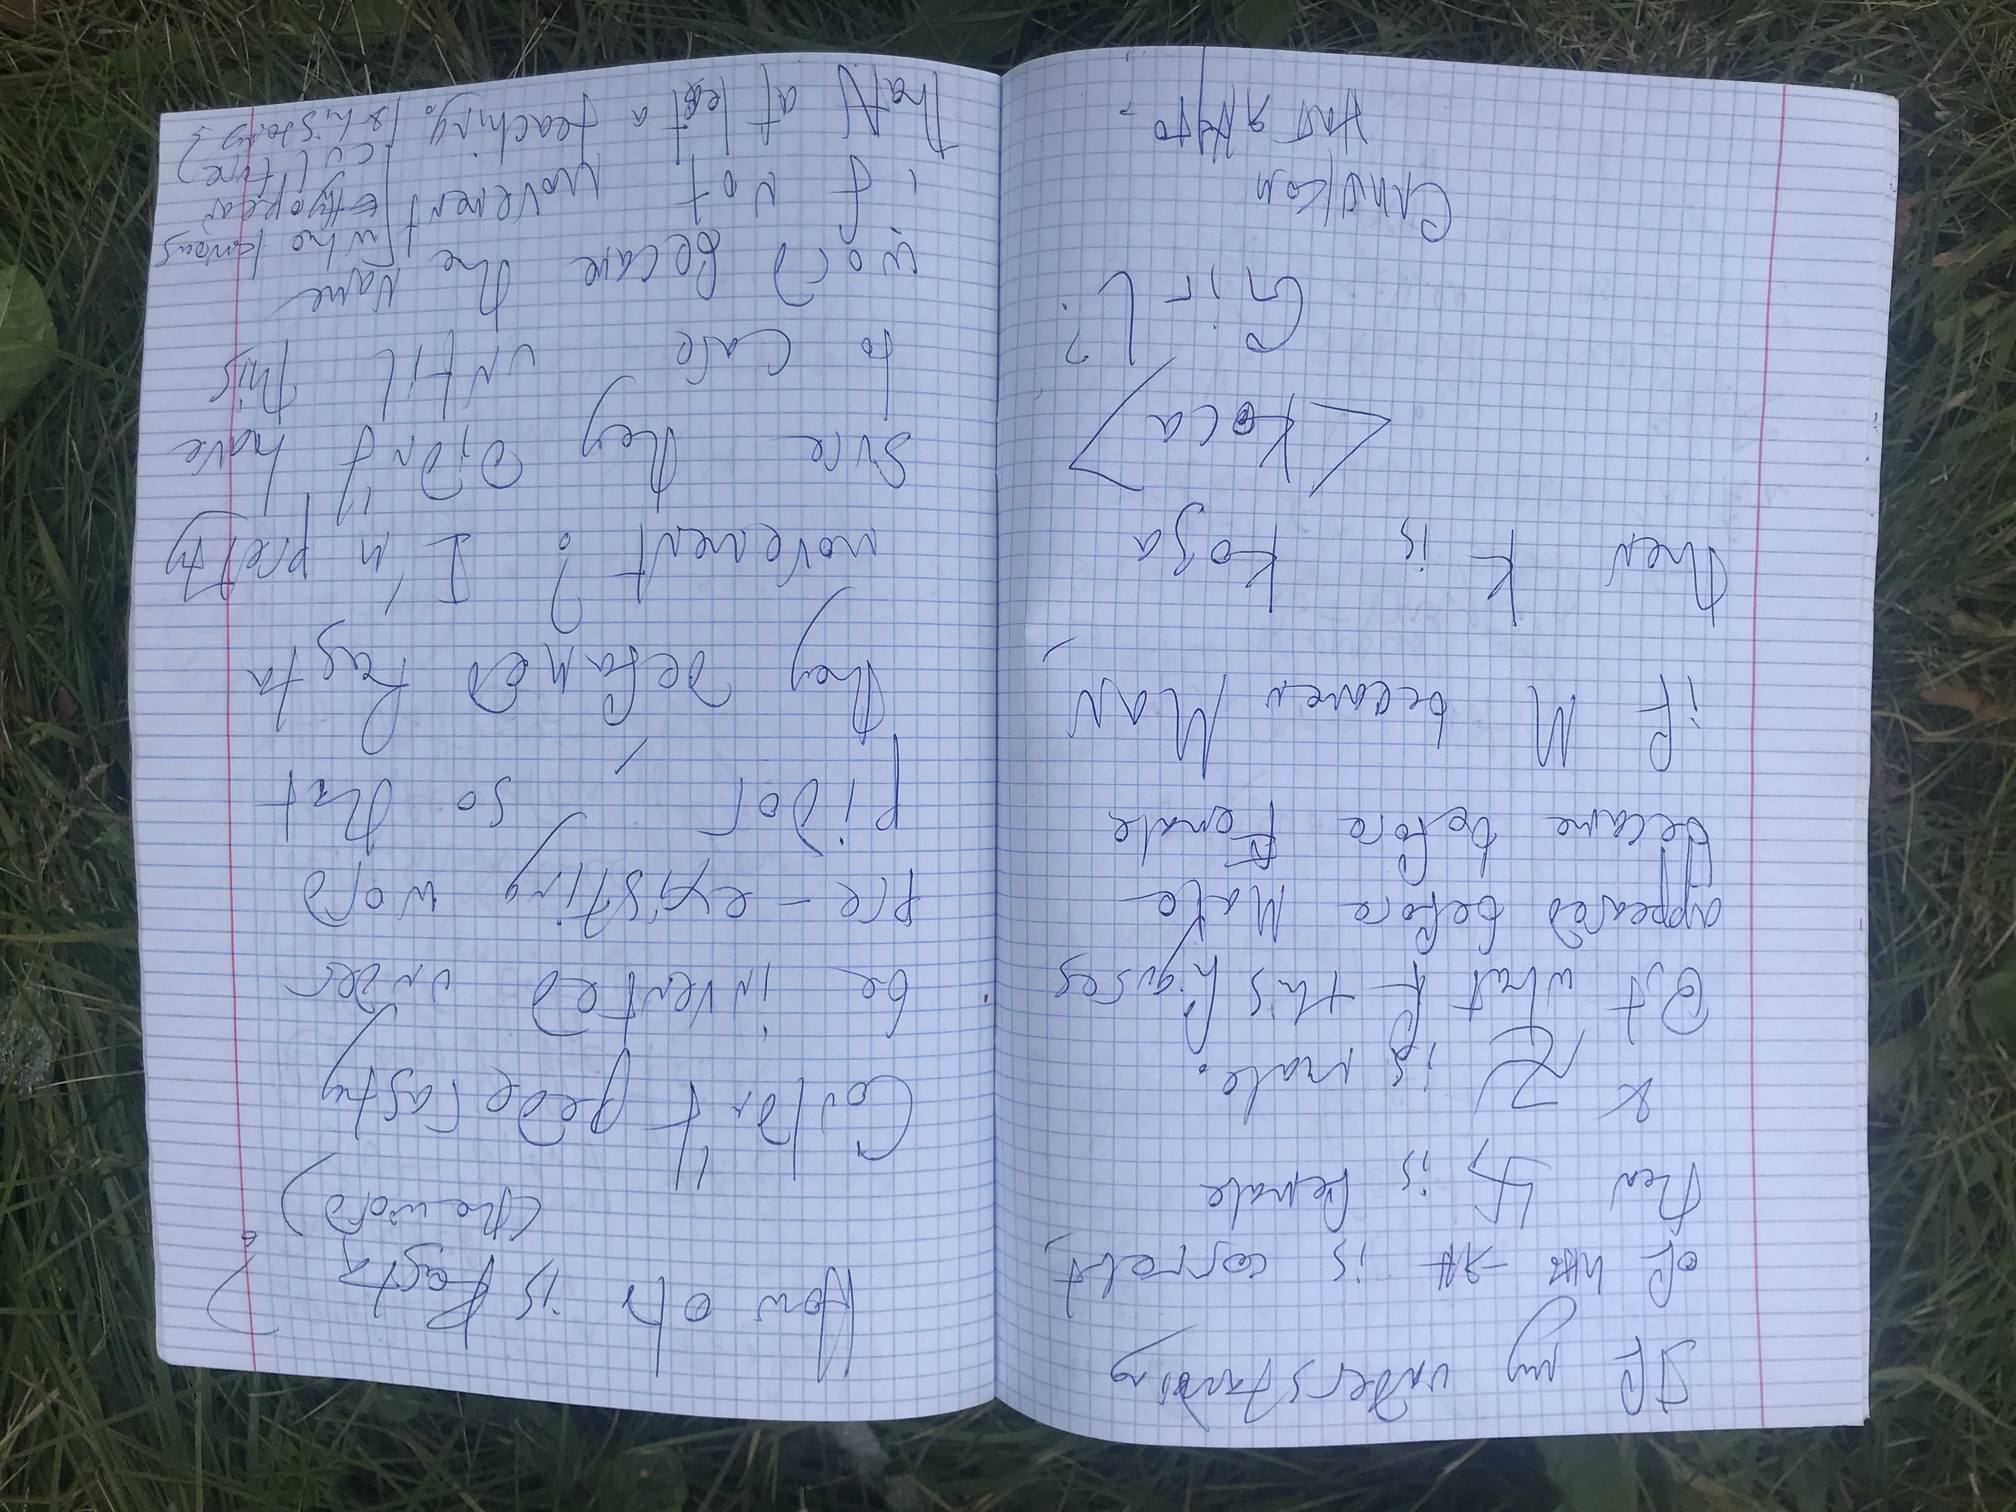 If my understanding
of is correct,
then is female
& is male.
But what if this figures
appeared before Male -
became before Female
if M becames Man,
then K is Koza
Koca
Girl?
Слишком
How old is Rasta ?
(the word)
Couldn't pederasty
be invented under
pre-existing word
pidor, so that
they defamed Rasta
movement? I'm pretty
sure they didn't have
to care until this
word became the name
if not movement
that at least a teaching.
(who knows
Ethyopean
culture)
& history?